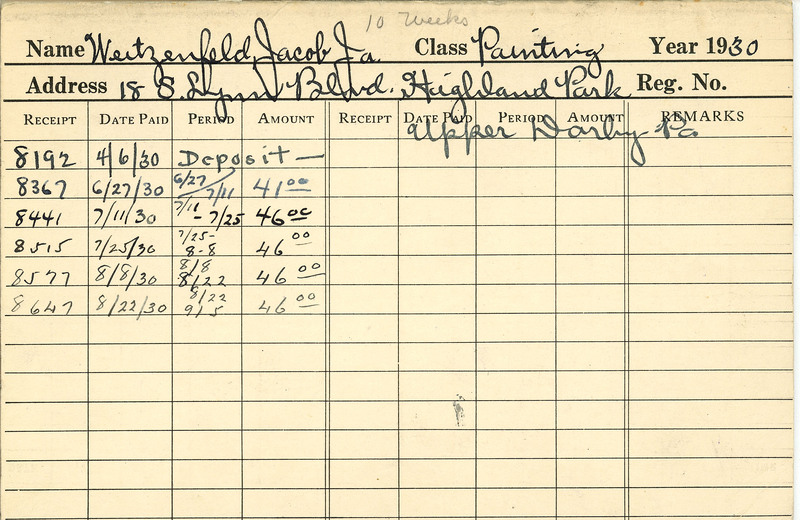 10 Weeks
Name Weitzenfeld, Jacob Ja. Class Painting Year 1930
Address 18 S. Lynn Blvd. Highland Park Reg. No.
Upper Darby Pa
RECEIPT DATE PAID PERIOD AMOUNT RECEIPT DATE PAID PERIOD AMOUNT REMARKS
8192 4/6/30 Deposit —
8367 6/27/30 6/27 7/11 41 00
8441 7/11/30 7/11 - 7/25 46 00
8515 7/25/30 7/25- 8-8 46 00
8577 8/8/30 8/8 8/22 46 00
8647 8/22/30 8/22 9/5 46 00